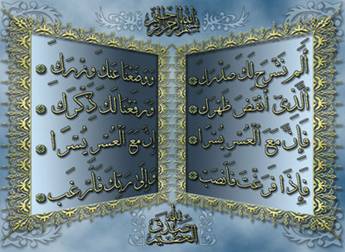 بسم الله الرحمن الرحيم
أَلَمْ نَشْرَحْ لَكَ صَدْرَكَ
وَوَضَعْنَا عَنكَ وِزْرَكَ
الَّذِي أَنقَضَ ظَهْرَكَ
وَرَفَعْنَا لَكَ ذِكْرَكَ
فَإِنَّ مَعَ الْعُسْرِ يُسْرًا
إِنَّ مَعَ الْعُسْرِ يُسْرًا
فَإِذَا فَرَغْتَ فَانصَبْ
وَإِلَى رَبِّكَ فَارْغَب
صدق الله العظيم